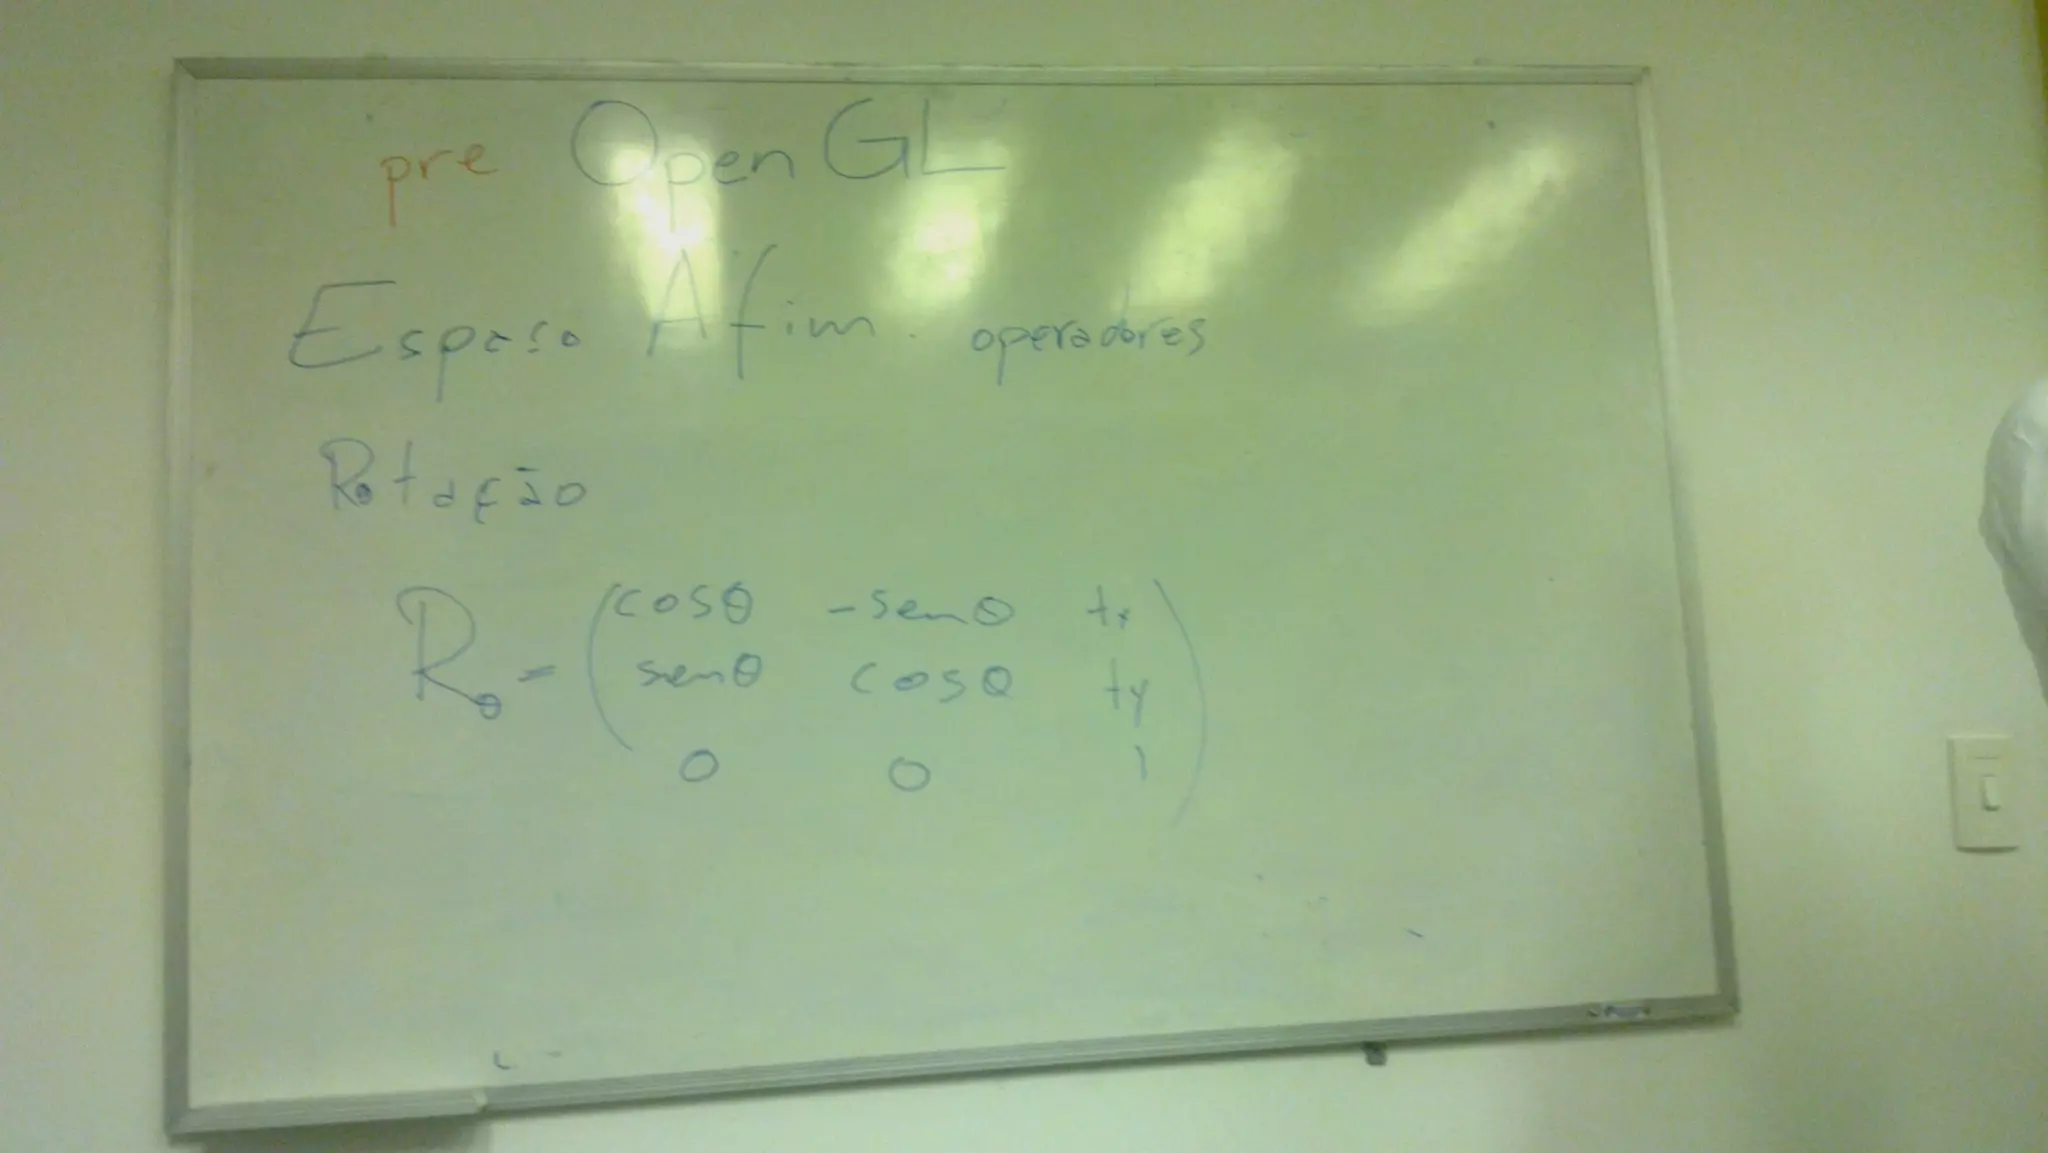 pre OpenGL
Espaço Afim. operadores
Rotação
Rθ = ( cosθ -senθ tx
senθ cosθ ty
0 0 1 )